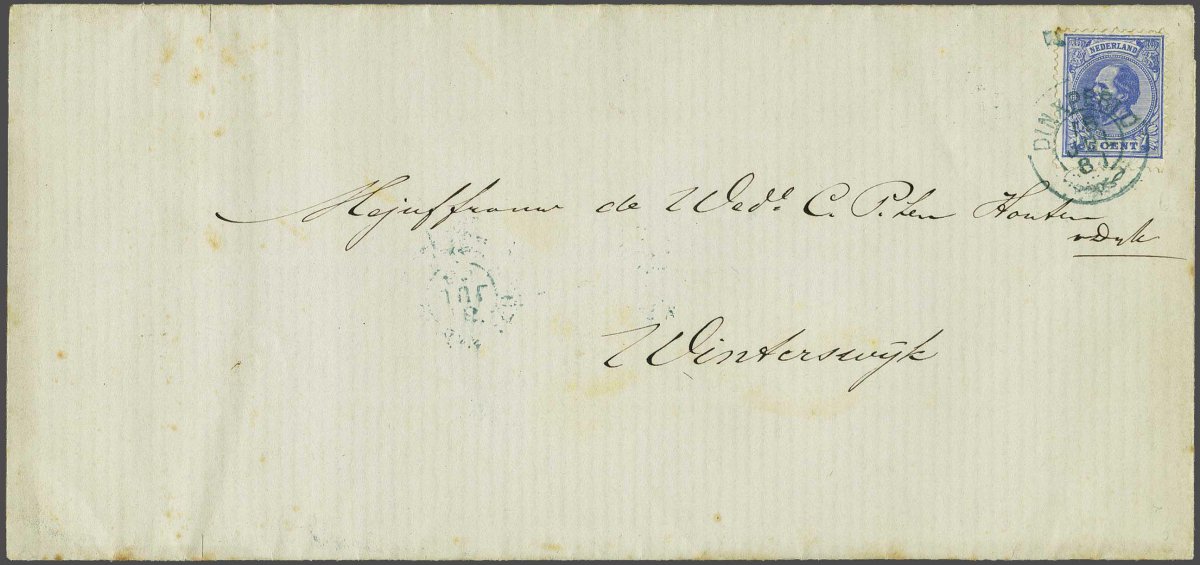 NEDERLAND
5 CENT
DINXPERLO
Mejuffrouw de Wede. C. P. ten Houten
v Dyk
Winterswijk